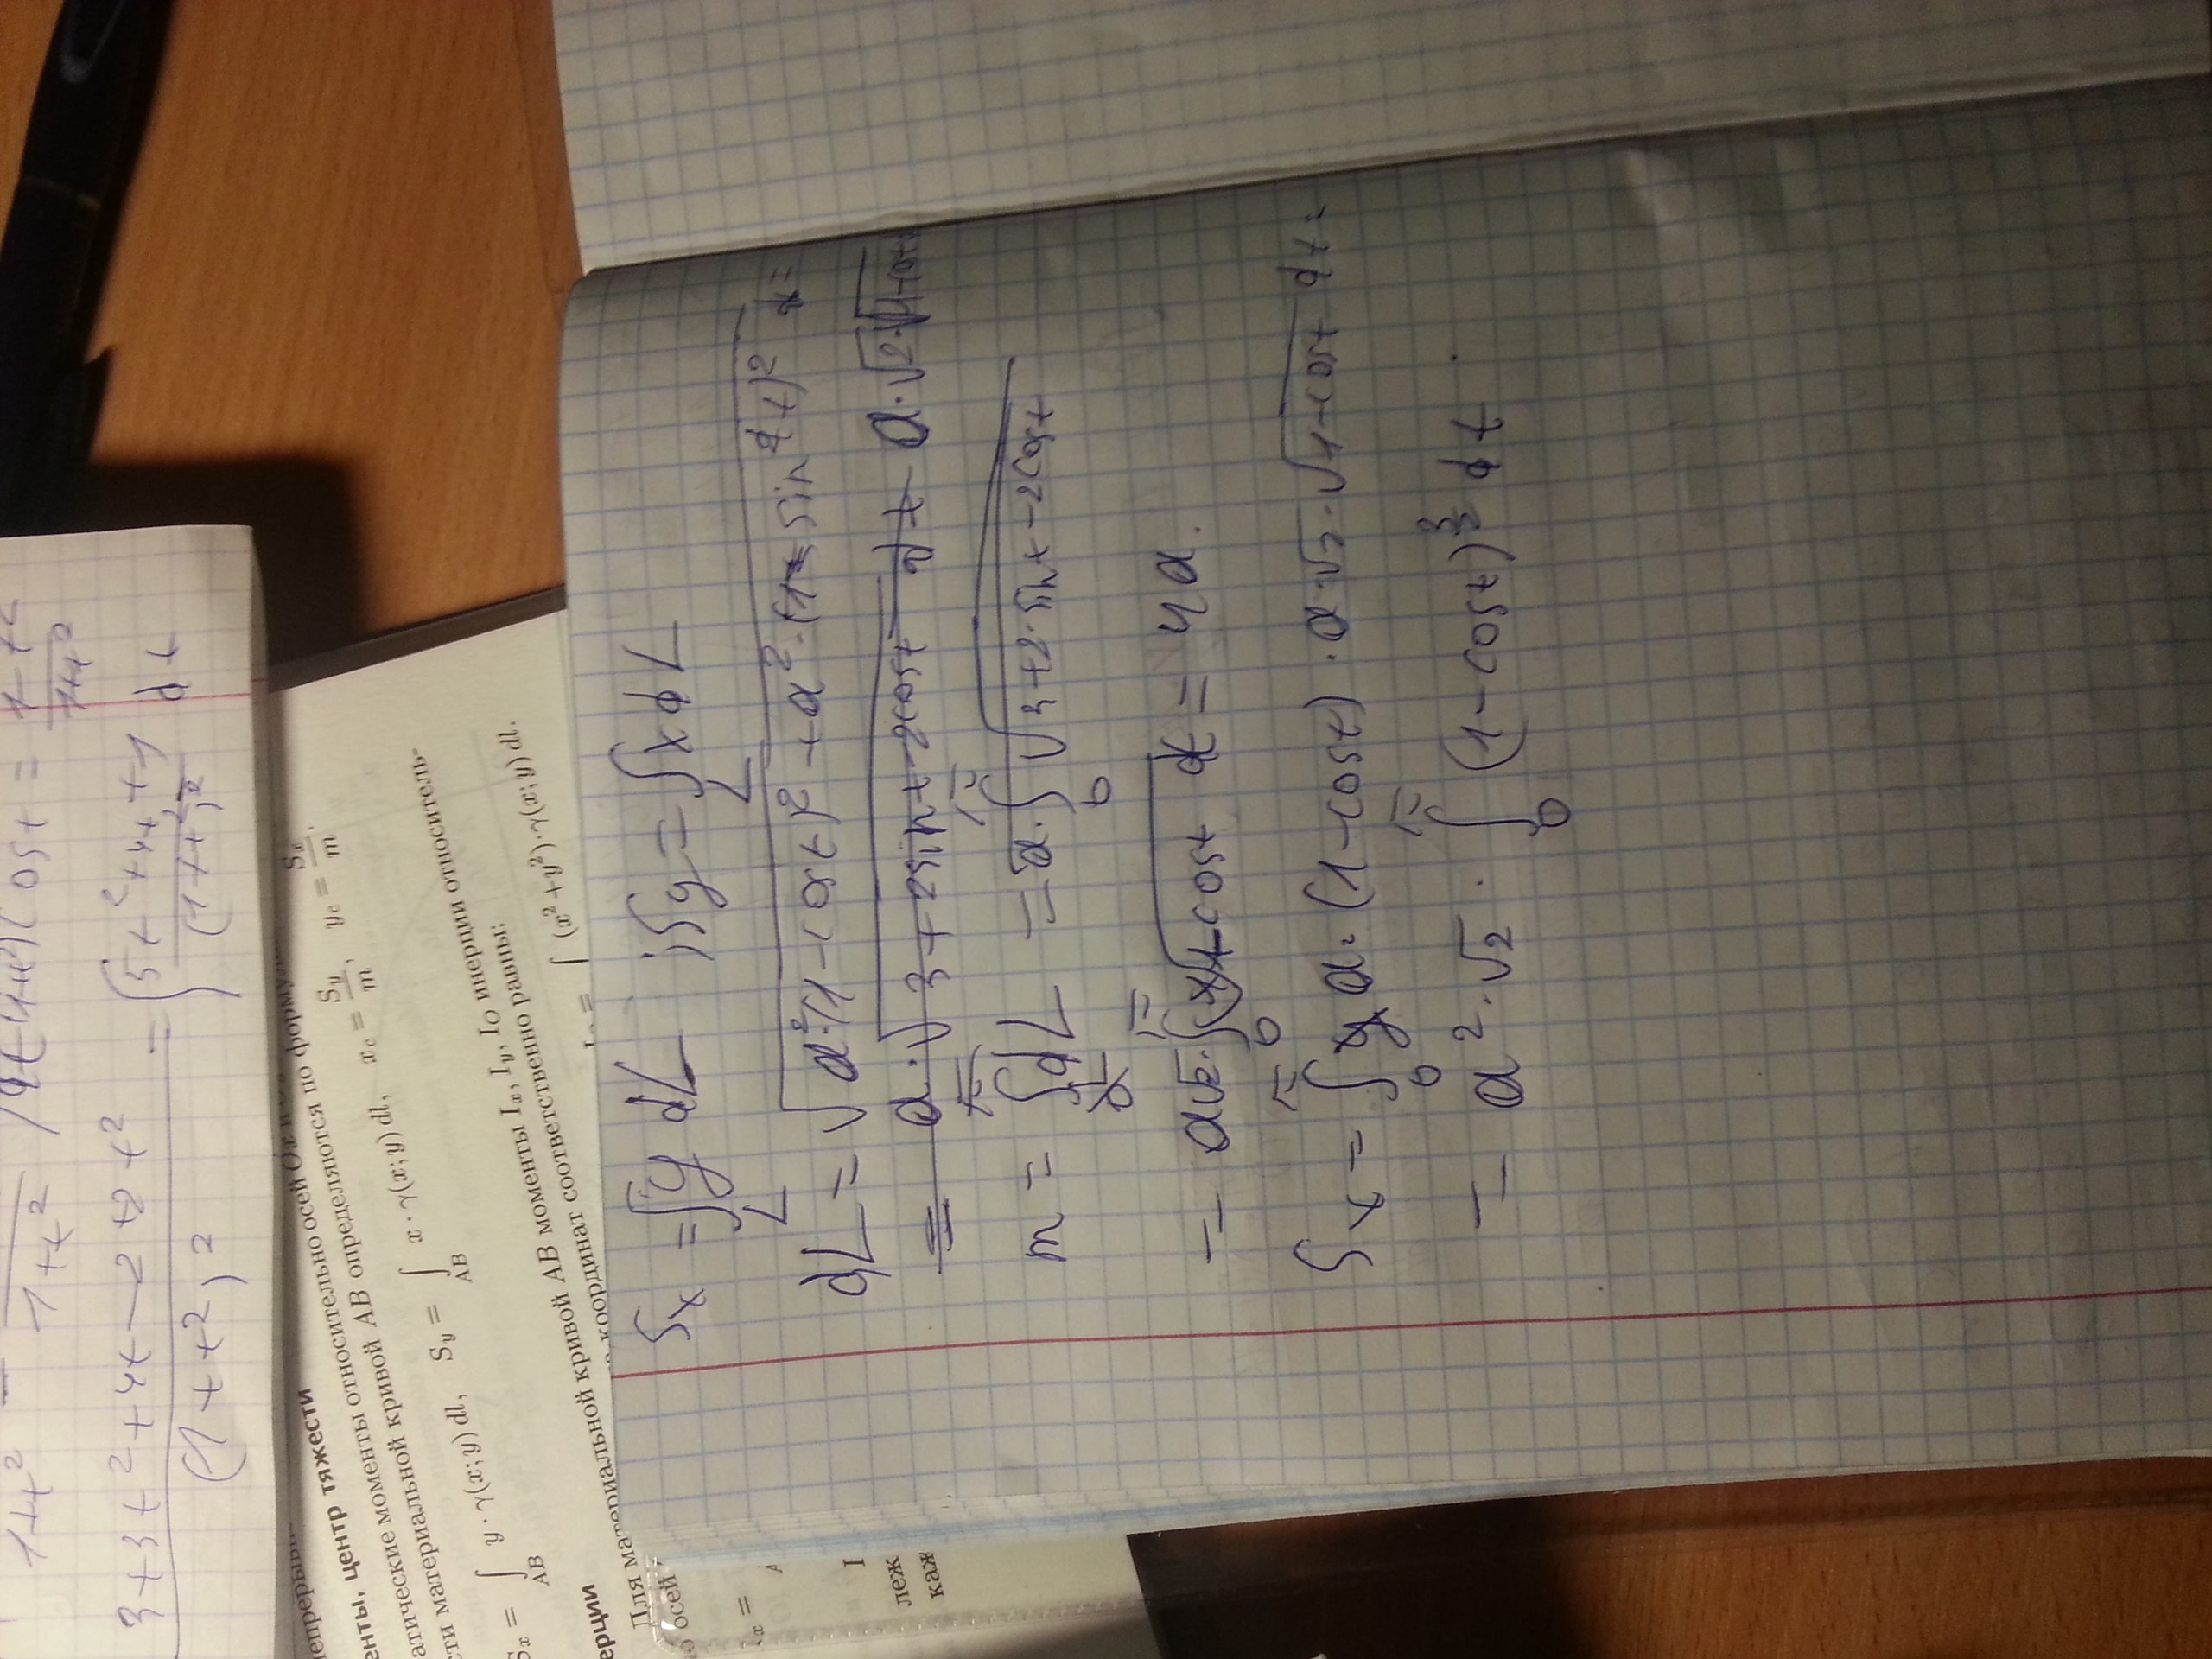 1+t² 1+t² cost = 1+t²
3+3t²+4t-2+2t² = ∫ 5t²+4t+1 dt
(1+t²)² (1+t²)²
енты, центр тяжести
атические моменты относительно осей Ox и
сти материальной кривой AB определяются по форму
Sx = ∫AB y·γ(x;y) dl, Sy = ∫AB x·γ(x;y) dl, xc = Sy/m, yc = Sx/m.
ерции
Для материальной кривой AB моменты Ix, Iy, Io инерции относитель-
о осей координат соответственно равны:
(x²+y²)·γ(x;y) dl.
леж
каж
Sx = ∫L y dL ; Sy = ∫L x dL
dL = √a²·(1-cost)²+a²·(sin t)² dt =
= a·√3+2sint-2cost dt a·√2·√1-cost
m = ∫ dL = a·∫0π √3+2·sint-2cost
= a√2·∫0π √1-cost dt = 4a.
Sx = ∫0π a·(1-cost)·a·√2·√1-cost dt =
= a²·√2·∫0π (1-cost)^3/2 dt